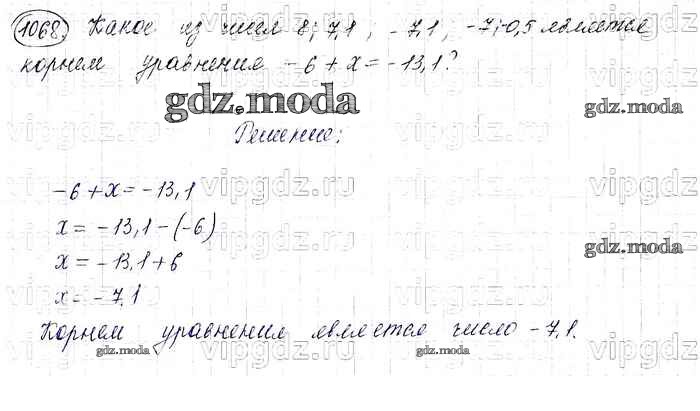 1068. Какое из чисел 8; 7,1; -7,1; -7; -0,5 является
корнем уравнения -6 + x = -13,1?
gdz.moda
gdz.moda
Решение:
-6 + x = -13,1
x = -13,1 - (-6)
x = -13,1 + 6
gdz.moda
x = -7,1
Корнем уравнения является число -7,1.
gdz.moda
gdz.moda
gdz.moda
vipgdz.ru
vipgdz.ru
vipgdz.ru
vipgdz.ru